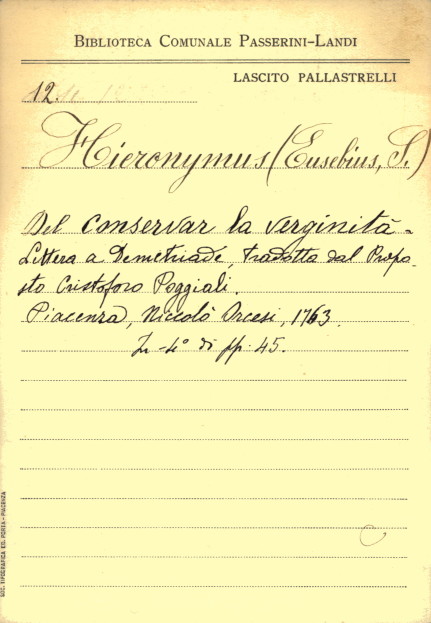 BIBLIOTECA COMUNALE PASSERINI-LANDI
LASCITO PALLASTRELLI
12.
Hieronymus (Eusebius, S.)
Del conservar la verginità -
Lettera a Demetriade, tradotta dal Propo-
sto Cristoforo Poggiali.
Piacenza, Niccolò Orcesi, 1763.
In-4° di pp. 45.
SOC. TIPOGRAFICA ED. PORTA - PIACENZA